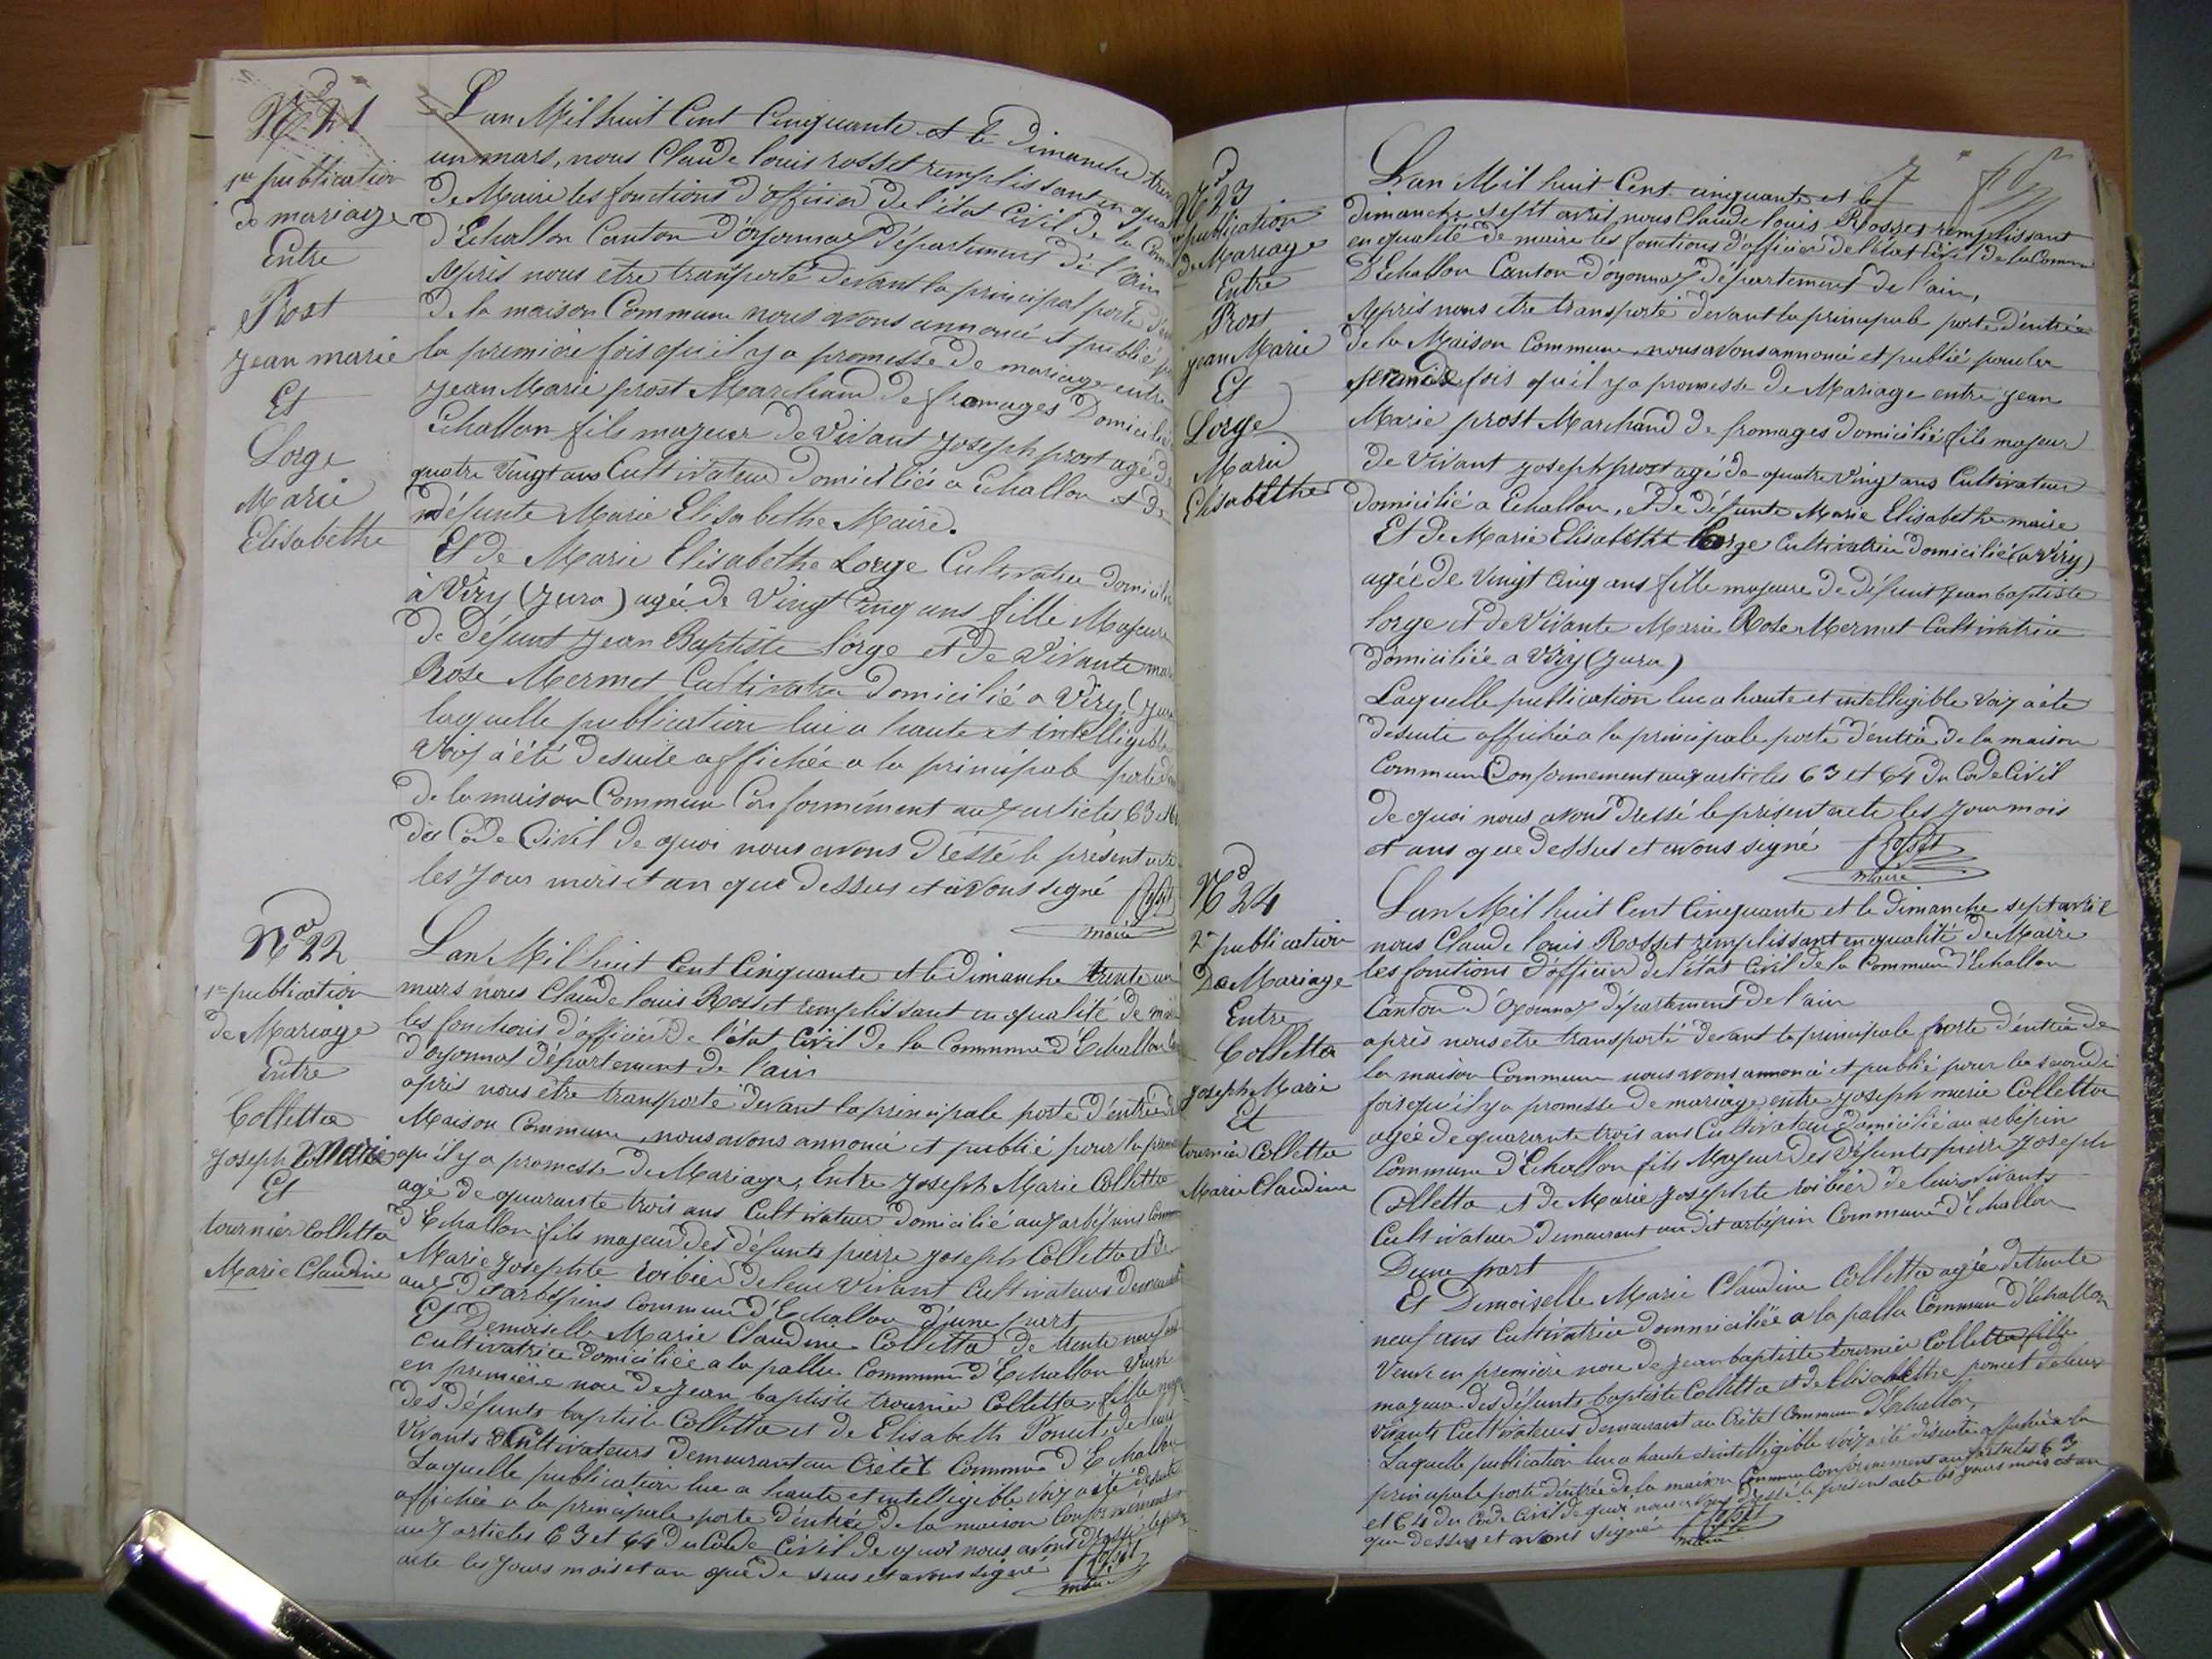 No 21
1re publication
de mariage
Entre
Prost
jean marie
Et
Lorge
Marie
Elisabethe
L'an Mil huit Cent Cinquante et le Dimanche
un mars, nous Claude louis rosset remplissant en
de Maire les fonctions d'officier de l'état Civil de la
d'Echallon Canton d'oyonnax Département de l'ain
Après nous etre transporté devant la principal porte
de la maison Commune nous avons annoncé et publié
la premiere fois qu'il y a promesse de mariage entre
jean Marie prost Marchand de fromages Domicilié
Echallon fils majeur de vivant joseph prost agé de
quatre vingt ans Cultivateur domiciliés a Echallon et de
défunte Marie Elisabethe Maire.
Et de Marie Elisabethe Lorge Cultivatrice
à Viry (jura) agée de Vingt cinq ans fille Majeure
de défunt jean Baptiste lorge et de vivante
Rose Mermet Cultivatrice domicilié a Viry
laquelle publication lue a haute et intelligible
voix a été desuite affichée a la principale
de la maison Commune Conformément aux articles 63
du Code Civil de quoi nous avons dressé le présent acte
les jour mois et an que dessus et avons signé
maire
No 22
1re publication
de Mariage
Entre
Colletta
joseph Marie
Et
tournier Colletta
Marie Claudine
L'an Mil huit Cent Cinquante et le dimanche trente un
mars nous Claude louis Rosset remplissant en qualité de
les fonctions d'officier de l'état Civil de la Commune d'Echallon
d'oyonnax département de l'ain
après nous être transporté devant la principale porte d'entrée
Maison Commune, nous avons annoncé et publié pour la
qu'il y a promesse de Mariage, Entre joseph Marie Colletta
agé de quarante trois ans Cultivateur domicilié aux arbépins
d'Echallon fils majeur des défunts pierre joseph Colletta et de
Marie josephte de leur vivant Cultivateurs
aux dit arbépins Commune d'Echallon d'une part
Et Demoiselle Marie Claudine Colletta de trente neuf ans
Cultivatrice domiciliée a la palla Commune d'Echallon Veuve
en première noce de jean baptiste tournier Colletta, fille
des défunts baptiste Colletta et de Elisabeth Poncet, de leurs
vivants Cultivateurs demeurant au Crétet Commune d'Echallon
Laquelle publication lue a haute et intelligible voix a été desuite
affichée a la principale porte d'entrée de la maison
aux articles 63 et 64 du Code Civil de quoi nous avons dressé
acte les jours mois et an que de ssus et avons signé
maire
No 23
publication
de Mariage
Entre
Prost
jean Marie
Et
Lorge
Marie
Elisabethe
L'an Mil huit Cent cinquante et le
dimanche sept avril nous Claude louis Rosset remplissant
en qualité de maire les fonctions d'officier de l'état Civil de la Commune
d'Echallon Canton d'oyonnax département de l'ain,
Après nous etre transporté devant la principale porte d'entrée
de la Maison Commune, nous avons annoncé et publié pour la
fois qu'il y a promesse de Mariage entre jean
Marie prost Marchand de fromages domicilié fils majeur
de vivant joseph prost agé de quatre vingt ans Cultivateur
domicilié a Echallon, et de défunte Marie Elisabethe maire
Et de Marie Elisabethe lorge Cultivatrice domicilié (a Viry)
agée de Vingt cinq ans fille majeure de défunt jean baptiste
lorge et de vivante Marie Rose Mermet Cultivatrice
domiciliée a Viry (jura)
Laquelle publication lue a haute et intelligible voix a été
desuite affichée a la principale porte d'entrée de la maison
Commune Conformement aux articles 63 et 64 du Code Civil
de quoi nous avons dressé le présent acte les jour mois
et ans que dessus et avons signé
maire
No 24
2e publication
De Mariage
Entre
Colletta
joseph Marie
Et
tournier Colletta
Marie Claudine
L'an Mil huit Cent Cinquante et le dimanche sept avril
nous Claude louis Rosset remplissant en qualité de Maire
les fonctions d'officier de l'état Civil de la Commune d'Echallon
Canton d'oyonnax département de l'ain
après nous etre transporté devant la principale porte d'entrée de
la maison Commune nous avons annoncé et publié pour la seconde
fois qu'il y a promesse de mariage entre joseph marie Colletta
agée de quarante trois ans Cultivateur domicilié au arbépin
Commune d'Echallon fils Majeur des défunts pierre joseph
Colletta et de Marie josephte de leur vivants
Cultivateur demeurant au dit arbépin Commune d'Echallon
D'une part
Et Demoiselle Marie Claudine Colletta agée de trente
neuf ans Cultivatrice dommiciliée a la palla Commune d'Echallon
Veuve en premiere noce de jean baptiste tournier Colletta fille
majeur des défunts baptiste Colletta et de Elisabethe poncet de leur
vivants Cultivateurs demeurant au Crétet Commune d'Echallon,
Laquelle publication lue a haute et intelligible voix a été desuite affichée a la
principale porte d'entrée de la maison Commune Conformement aux articles 63
et 64 du Code Civil de quoi nous avons dressé le présent acte les jours mois et an
que dessus et avons signé
maire